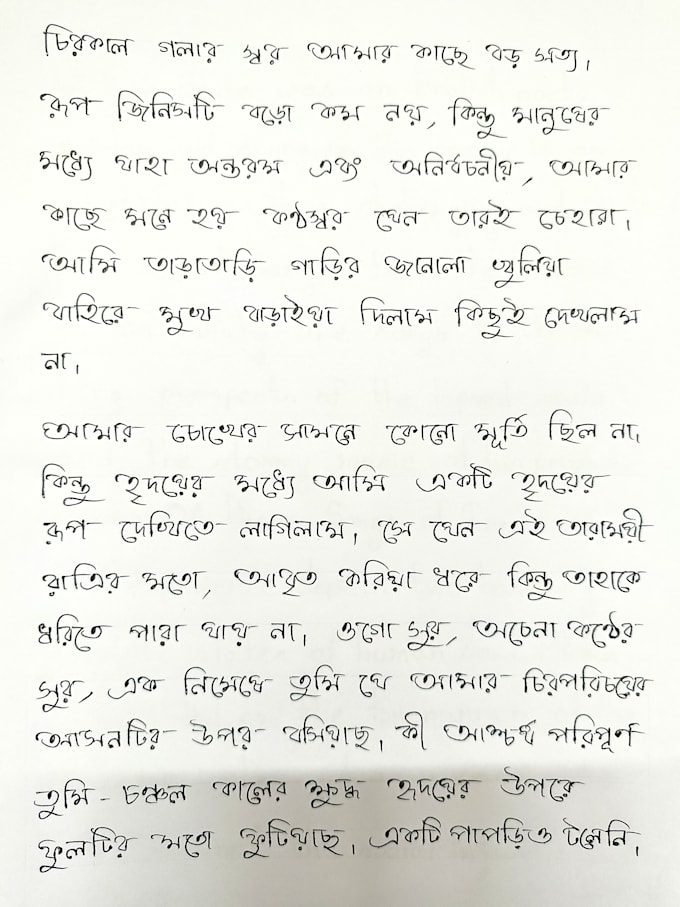 চিরকাল গলার স্বর আমার কাছে বড় সত্য।
রূপ জিনিসটি বড়ো কম নয়, কিন্তু মানুষের
মধ্যে যাহা অন্তরতম এবং অনির্বচনীয়, আমার
কাছে মনে হয় কণ্ঠস্বর যেন তারই চেহারা।
আমি তাড়াতাড়ি গাড়ির জানালা খুলিয়া
বাহিরে মুখ বাড়াইয়া দিলাম কিছুই দেখলাম
না।
আমার চোখের সামনে কোনো মূর্তি ছিল না।
কিন্তু হৃদয়ের মধ্যে আমি একটি হৃদয়ের
রূপ দেখিতে লাগিলাম। সে যেন এই তারাময়ী
রাত্রির মতো, আবৃত করিয়া ধরে কিন্তু তাহাকে
ধরিতে পারা যায় না। ওগো সুর, অচেনা কণ্ঠের
সুর, এক নিমেষে তুমি যে আমার চিরপরিচয়ের
আসনটির উপর বসিয়াছ। কী আশ্চর্য পরিপূর্ণ
তুমি - চঞ্চল কালের ক্ষুদ্ধ হৃদয়ের উপরে
ফুলটির মতো ফুটিয়াছ। একটি পাপড়িও টলেনি।